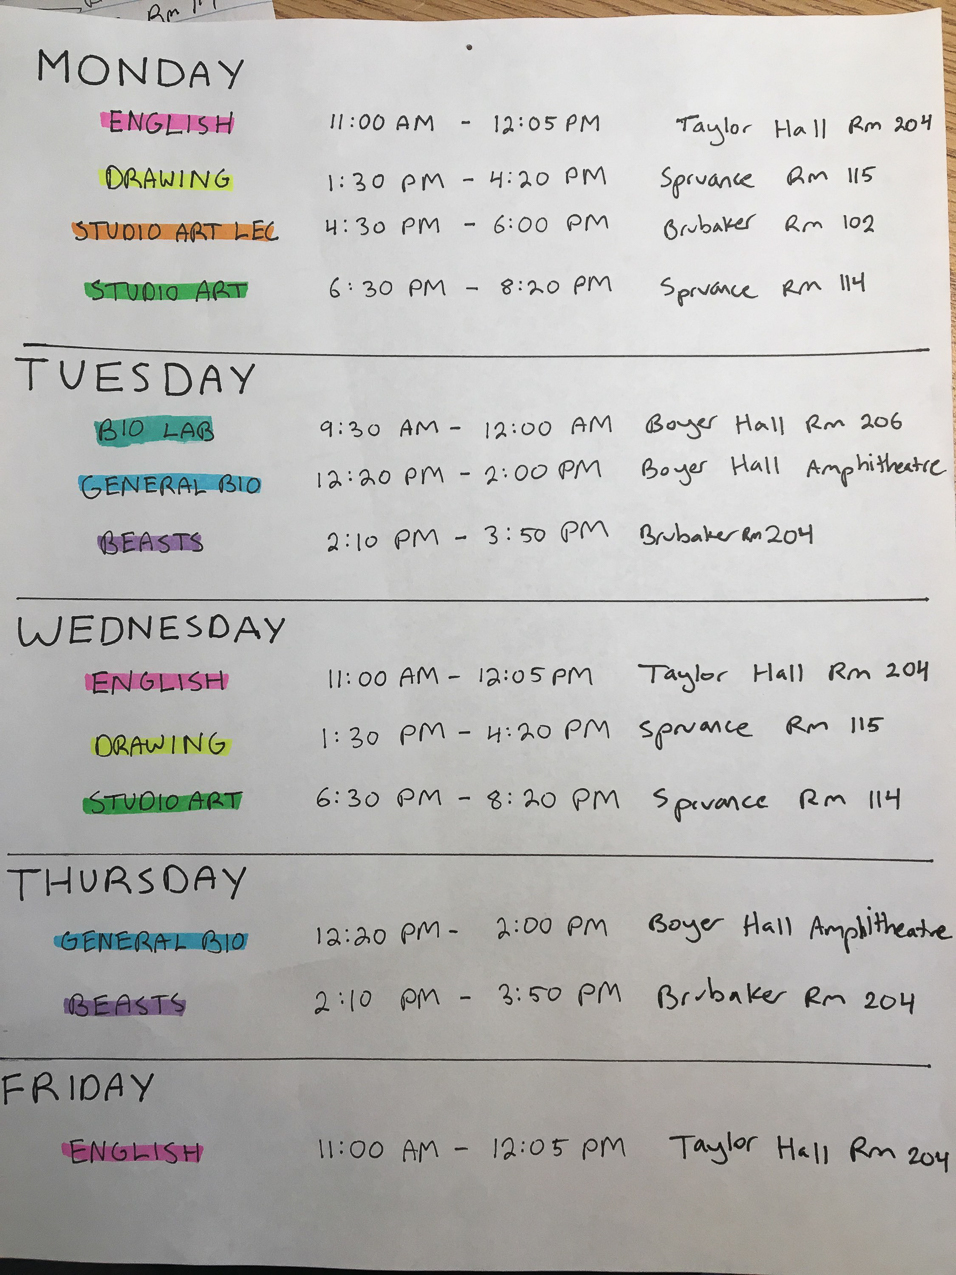 Rm 114
MONDAY
ENGLISH 11:00 AM - 12:05 PM Taylor Hall Rm 204
DRAWING 1:30 PM - 4:20 PM Spruance Rm 115
STUDIO ART LEC 4:30 PM - 6:00 PM Brubaker Rm 102
STUDIO ART 6:30 PM - 8:20 PM Spruance Rm 114
TUESDAY
BIO LAB 9:30 AM - 12:00 AM Boyer Hall Rm 206
GENERAL BIO 12:20 PM - 2:00 PM Boyer Hall Amphitheatre
BEASTS 2:10 PM - 3:50 PM Brubaker Rm 204
WEDNESDAY
ENGLISH 11:00 AM - 12:05 PM Taylor Hall Rm 204
DRAWING 1:30 PM - 4:20 PM Spruance Rm 115
STUDIO ART 6:30 PM - 8:20 PM Spruance Rm 114
THURSDAY
GENERAL BIO 12:20 PM - 2:00 PM Boyer Hall Amphitheatre
BEASTS 2:10 PM - 3:50 PM Brubaker Rm 204
FRIDAY
ENGLISH 11:00 AM - 12:05 PM Taylor Hall Rm 204